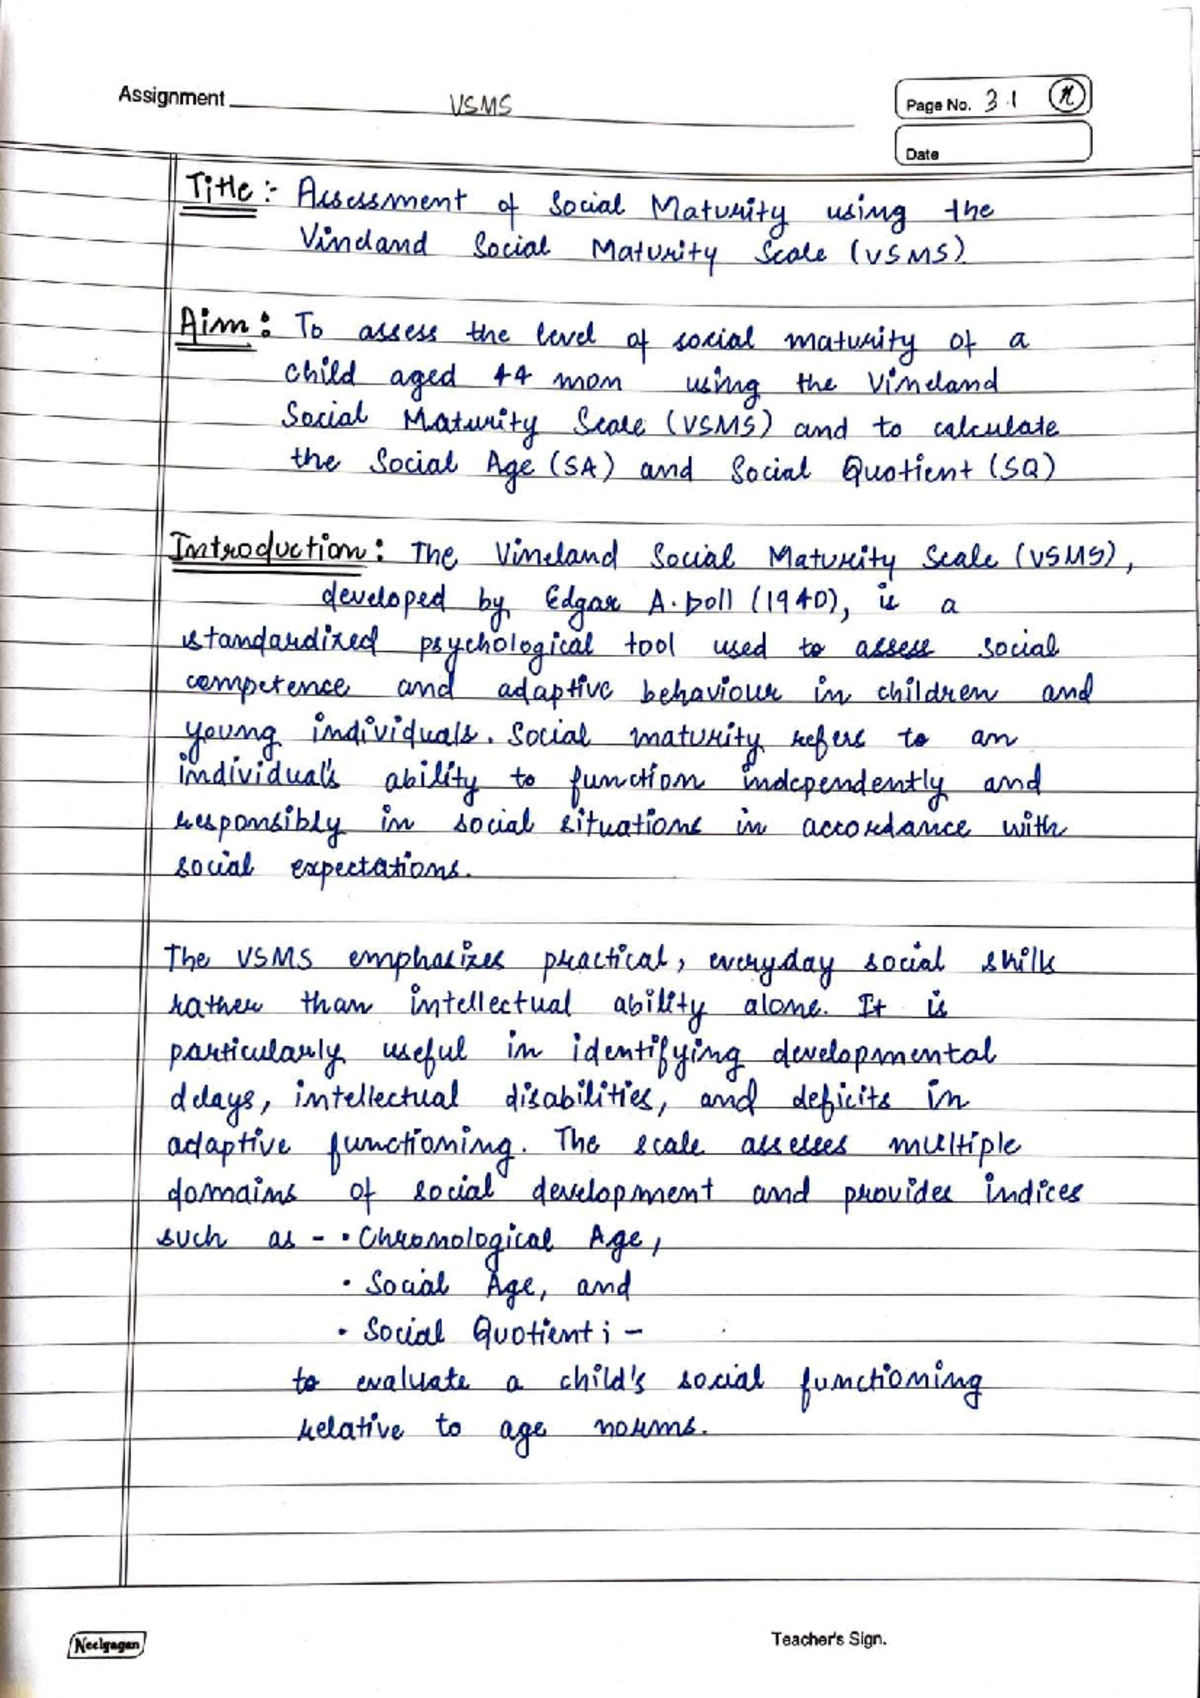 Assignment VSMS
Page No. 3.1
Date
Title :- Assessment of Social Maturity using the
Vineland Social Maturity Scale (VSMS)
Aim : To assess the level of social maturity of a
child aged 44 mon using the Vineland
Social Maturity Scale (VSMS) and to calculate
the Social Age (SA) and Social Quotient (SQ)
Introduction : The Vineland Social Maturity Scale (VSMS),
developed by Edgar A. Doll (1940), is a
standardized psychological tool used to assess social
competence and adaptive behaviour in children and
young individuals. Social maturity refers to an
individual's ability to function independently and
responsibly in social situations in accordance with
social expectations.
The VSMS emphasizes practical, everyday social skills
rather than intellectual ability alone. It is
particularly useful in identifying developmental
delays, intellectual disabilities, and deficits in
adaptive functioning. The scale assesses multiple
domains of social development and provides indices
such as - • Chronological Age,
• Social Age, and
• Social Quotient ; -
to evaluate a child's social functioning
relative to age norms.
Neelgagan
Teacher's Sign.